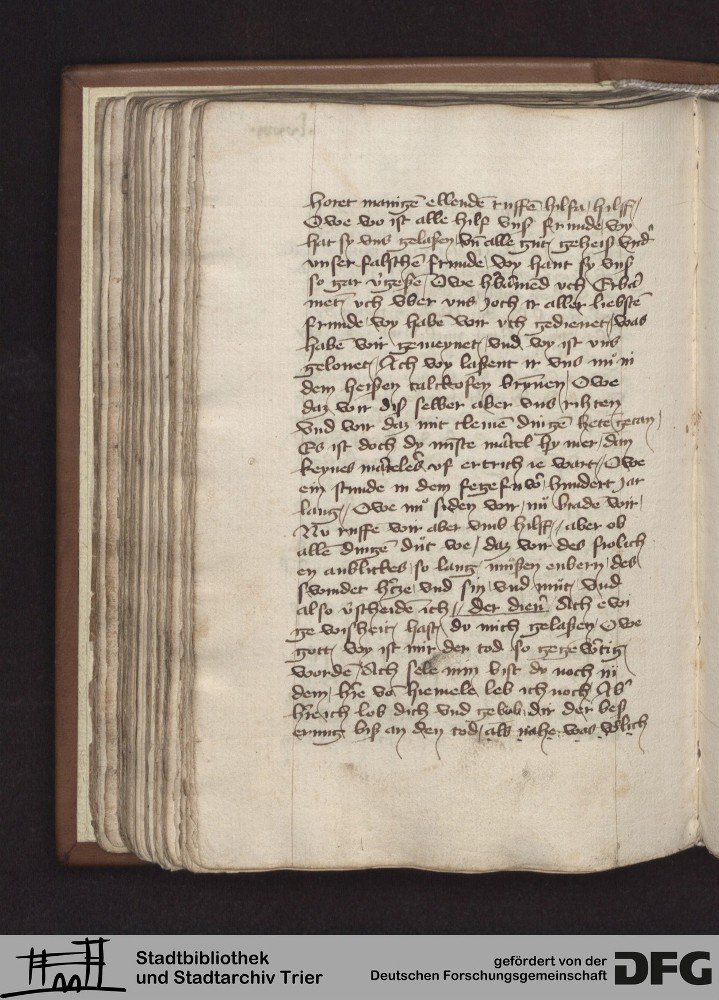 horet manigē ellendē ruffē hilfa / hilff /
Owe wo ist alle hilf vnß frunde / wy
hat sy vns gelaßen / vn̄ alle gut geheiß vnd
vnser falschē frunde / wy hant sy vnß
so gar v'geßē / Owe
met / vch vber vns / joch ir aller liebstē
frunde / wy habē wir vch gedienet / was
habē wir gemeynet / vnd wy ist vns
gelonet / Ach wy laßent ir vns nu in
dem heißen kalckofen brynnen / Owe
daz wir diß selber aber vns rihten
vnd wir daz mit cleinē dingē hete getan /
Es ist doch dy mīste martel hy mer / dan
keynes vf ertrich ie wart / Owe
ein stunde in dem fegefuw' / hundert jar
lang / Owe nu siden wir / nu wir
Nu ruffe wir aber vmb hilff / aber ob
allē dingē dut we / daz wir des frolich
en anblickes so lang mußen enbern / des
swindet h'tze vnd sin / vnd mut / vnd
also v'scheidē ich / der dien' Ach ewi
ge wisheit hast du mich gelaßen / Owe
gott / wy ist mir der tod so gege w'tig
worde / Ach sele min bist du noch in
dem / h're vō hiemele leb ich noch / Ab'
h're ich lob dich vnd gelob dir der beß
erung biß an den tod / als nahe was
Stadtbibliothek
und Stadtarchiv Trier
gefördert von der
Deutschen Forschungsgemeinschaft
DFG